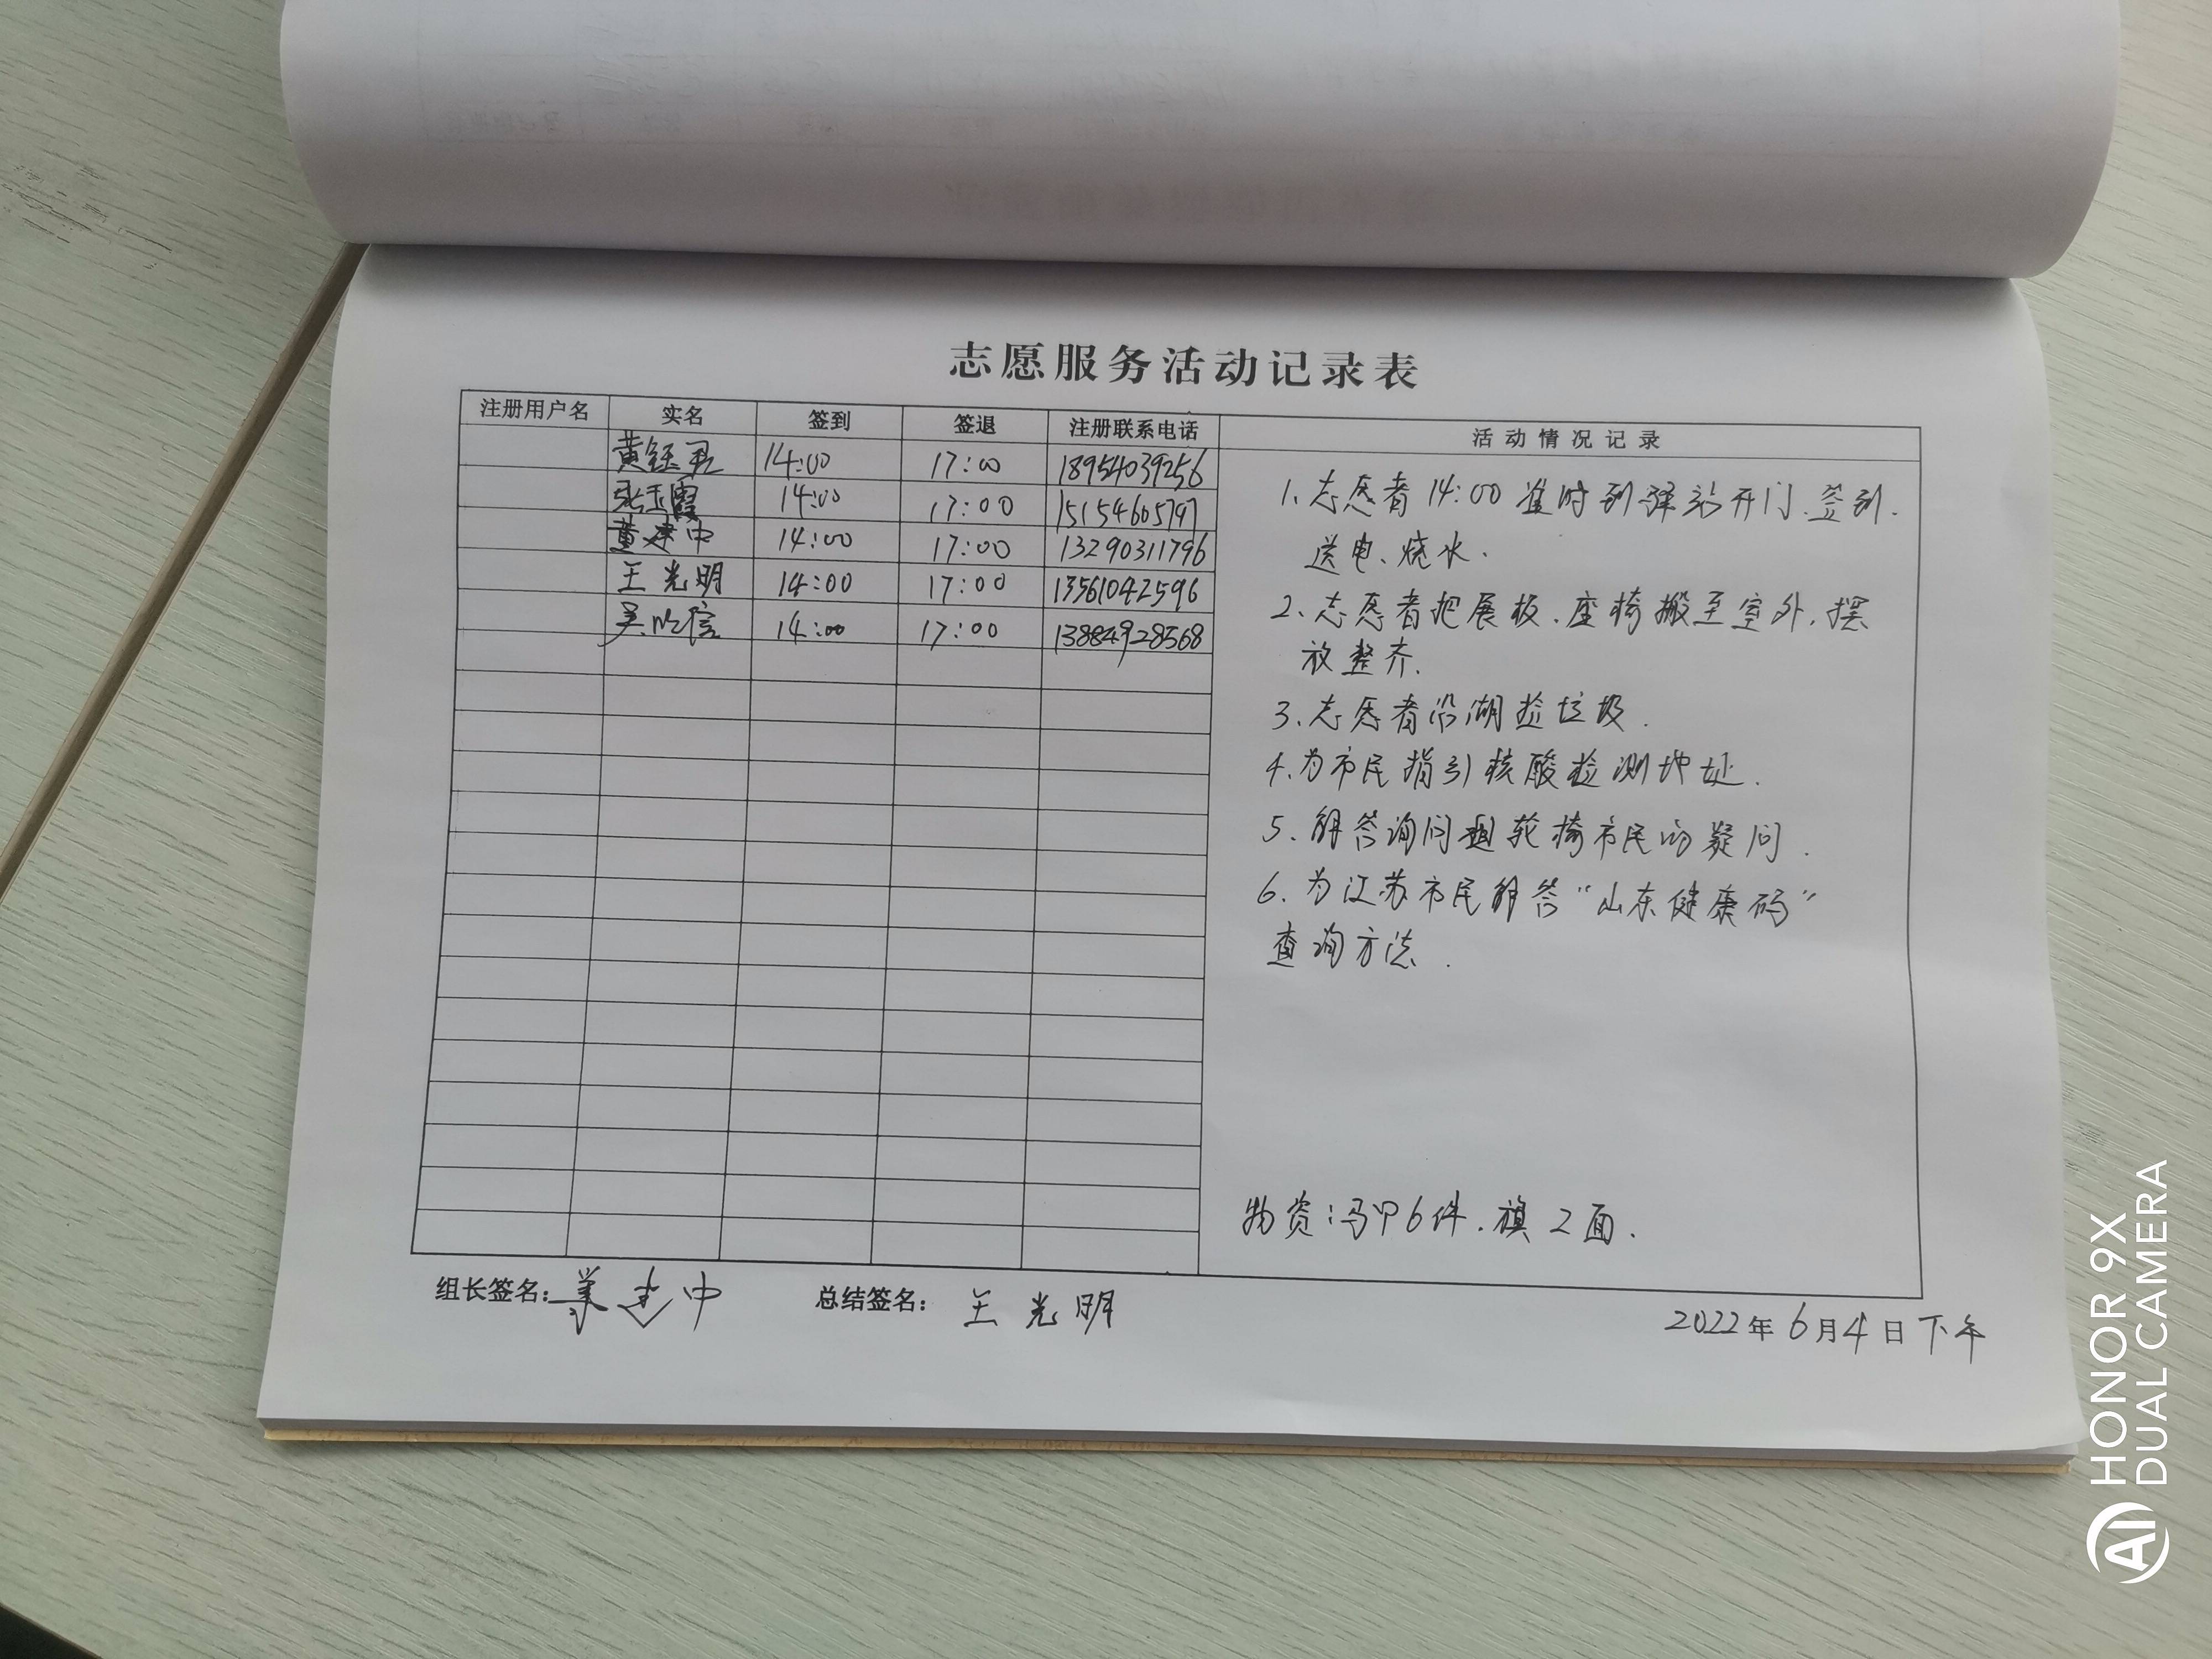 志愿服务活动记录表
注册用户名 实名 签到 签退 注册联系电话 活动情况记录
黄钰 14:00 17:00 18954039256
张玉霞 14:00 17:00 15154605797
黄建中 14:00 17:00 13290311796
王光明 14:00 17:00 13561042596
吴 14:00 17:00 13884928568
1、志愿者14:00准时到驿站开门、签到、
送电、烧水.
2、志愿者把展板、座椅搬至室外,摆
放整齐.
3、志愿者沿湖捡垃圾.
4.为市民指引核酸检测地址.
5、解答询问 轮椅市民的疑问.
6.为江苏市民解答“山东健康码”
查询方法.
物资:马甲6件.旗2面.
组长签名: 黄建中 总结签名: 王光明
2022年6月4日下午
HONOR 9X
DUAL CAMERA
AI